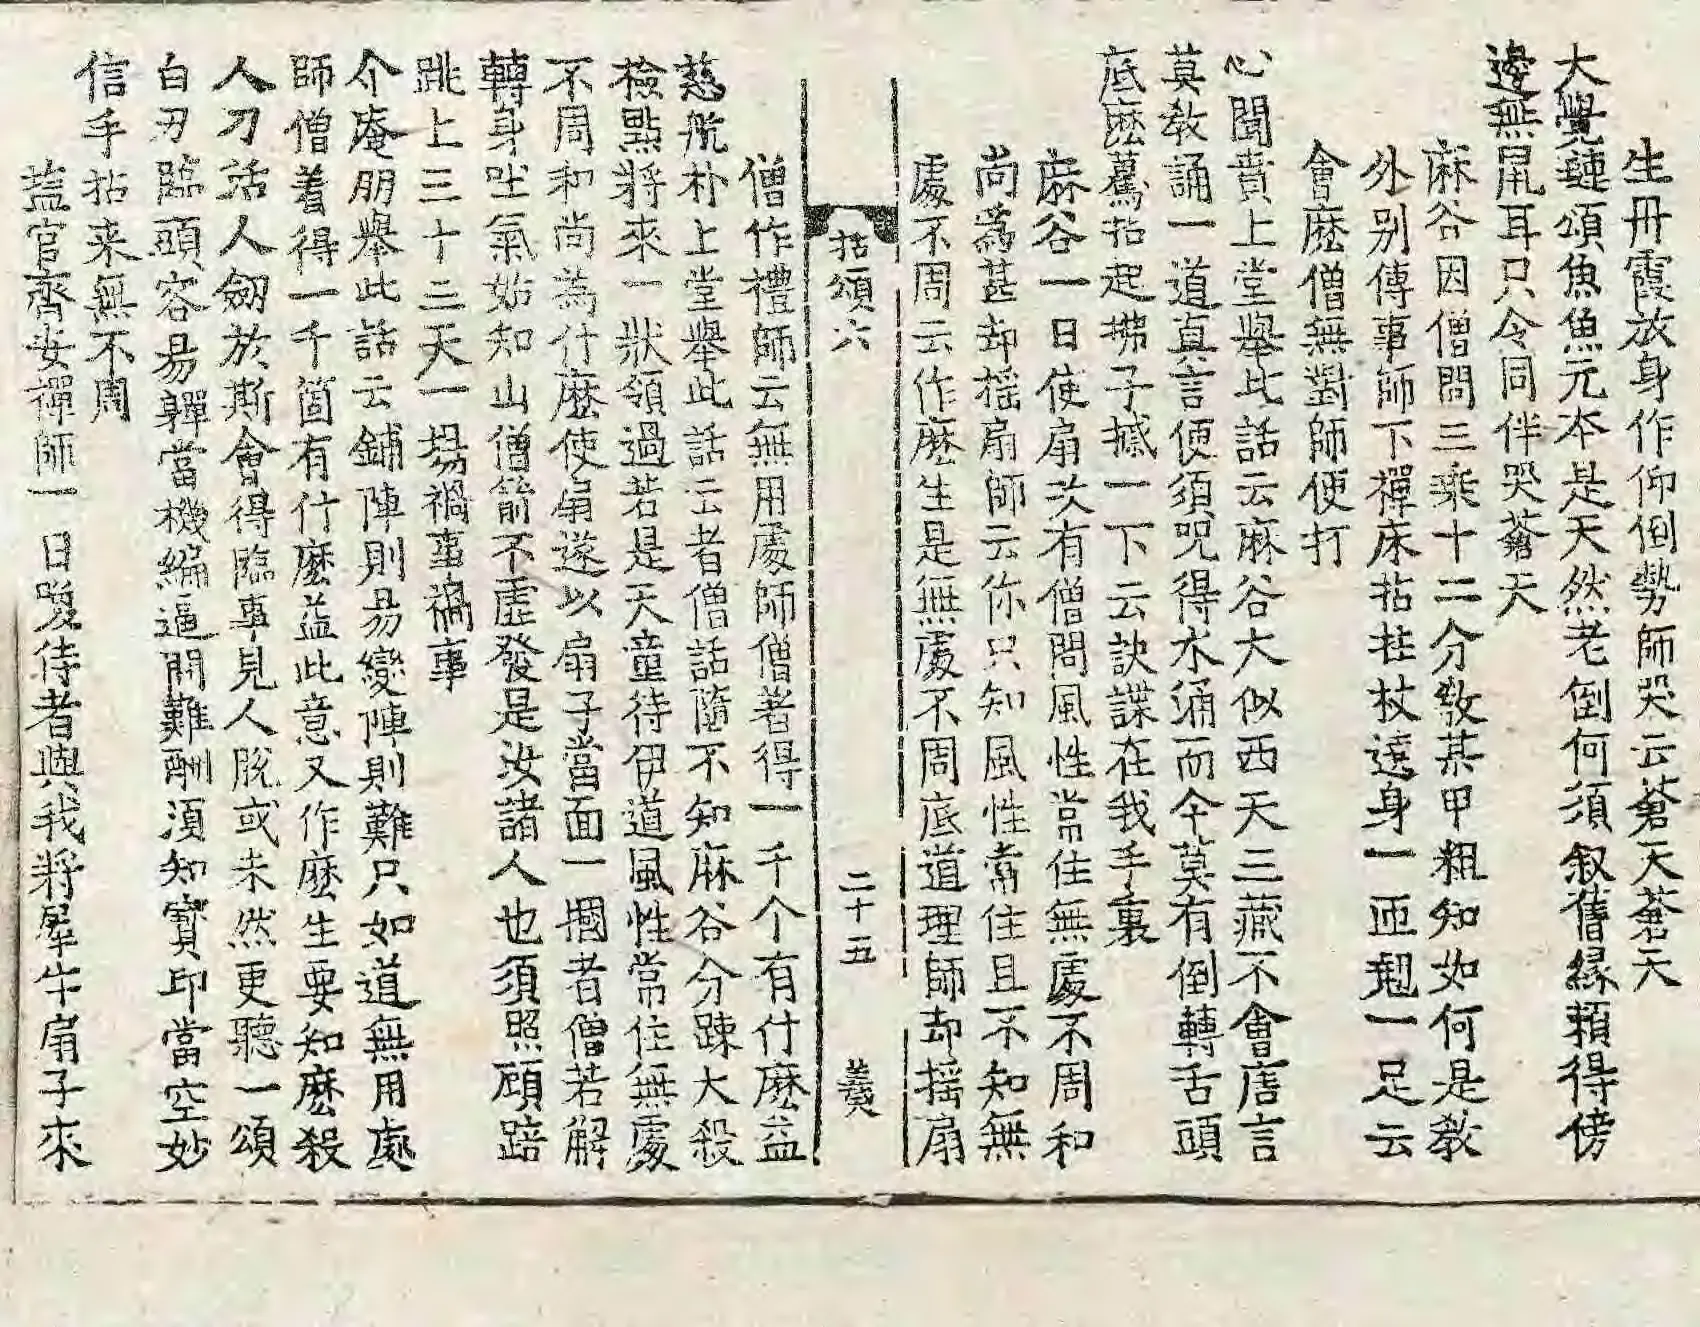 生丹霞放身作仰倒勢師哭云蒼天蒼天
大覺璉頌魚魚元本是天然老倒何須叙舊緣賴得傍
邊無屌耳只今同伴哭蒼天
麻谷因僧問三乘十二分教某甲粗知如何是教
外别傳事師下禪床拈拄杖遶身一匝翹一足云
會麽僧無對師便打
心聞賁上堂舉此話云麻谷大似西天三藏不會唐言
莫教誦一道真言便須咒得水涌而今莫有倒轉舌頭
底麽驀拈起拂子撼一下云訣諜在我手裏
麻谷一日使扇次有僧問風性常住無處不周和
尚爲甚却揺扇師云你只知風性常住且不知無
處不周云作麽生是無處不周底道理師却揺扇
拈頌六 二十五 羲
僧作禮師云無用處師僧著得一千个有什麽益
慈航朴上堂舉此話云者僧話隨不知麻谷分踈大殺
檢點將來一狀領過若是天童待伊道風性常住無處
不周和尚為什麽使扇遂以扇子當面一摑者僧若解
轉身吐氣始知山僧箭不虚發是汝諸人也須照顧踣
跳上三十三天一場禍事禍事
介庵朋舉此話云鋪陣則易變陣則難只如道無用處
師僧着得一千箇有什麽益此意又作麽生要知麽殺
人刀活人劒於斯會得臨事見人脱或未然更聽一頌
白刃臨頭容易嚲當機編逼開難酬湏知寶印當空妙
信手拈来無不周
盐官齊安禪師一日喚侍者與我將犀牛扇子來